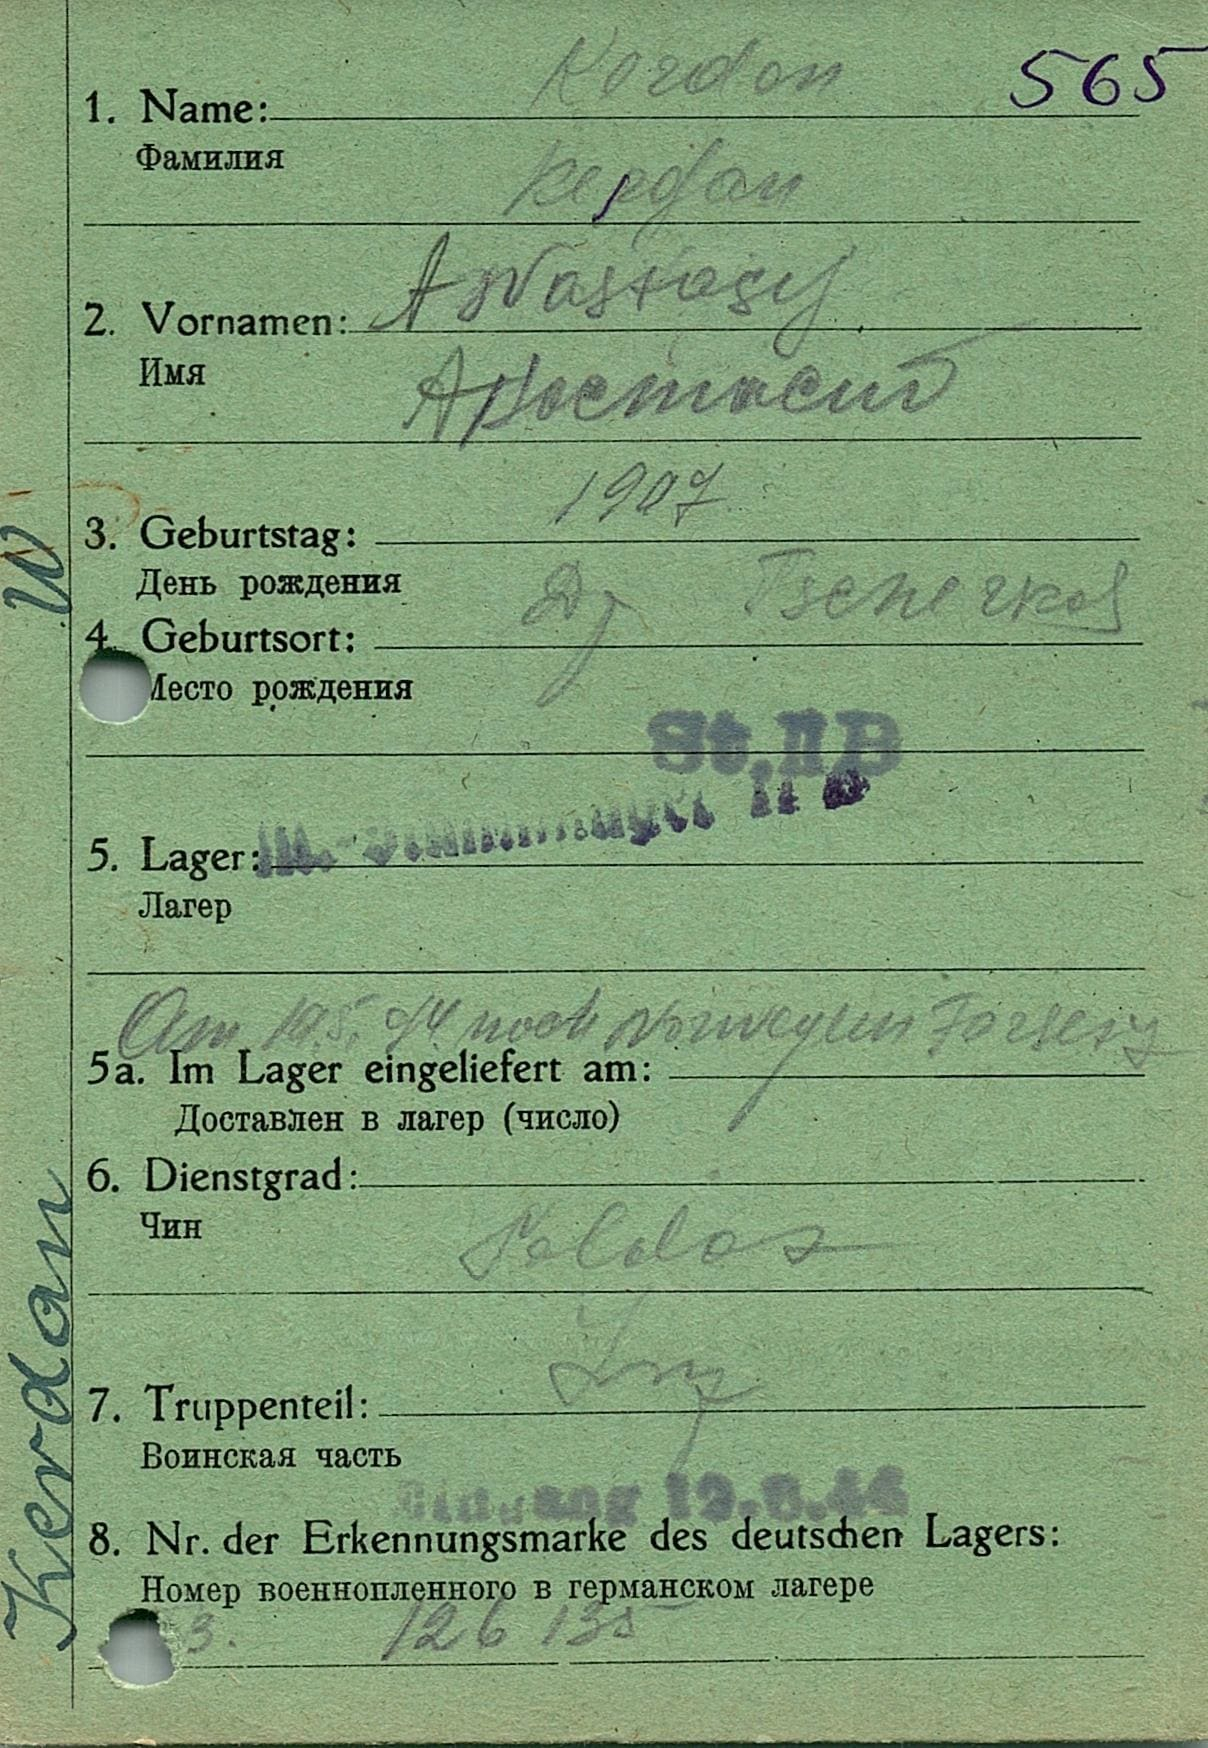 565
Kordon
1. Name:
Фамилия
Кердан
Anastasy
2. Vornamen:
Имя
Анастасий
1907
3. Geburtstag:
День рождения
Tscherkas
4. Geburtsort:
Место рождения
St. II B
II B
5. Lager:
Лагер
Am 19.5.44 nach Norwegen
5a. Im Lager eingeliefert am:
Доставлен в лагер (число)
6. Dienstgrad:
Чин
Soldat
Inf
7. Truppenteil:
Воинская часть
Eingang
8. Nr. der Erkennungsmarke des deutschen Lagers:
Номер военнопленного в германском лагере
3. 126 135
W
Kerdan